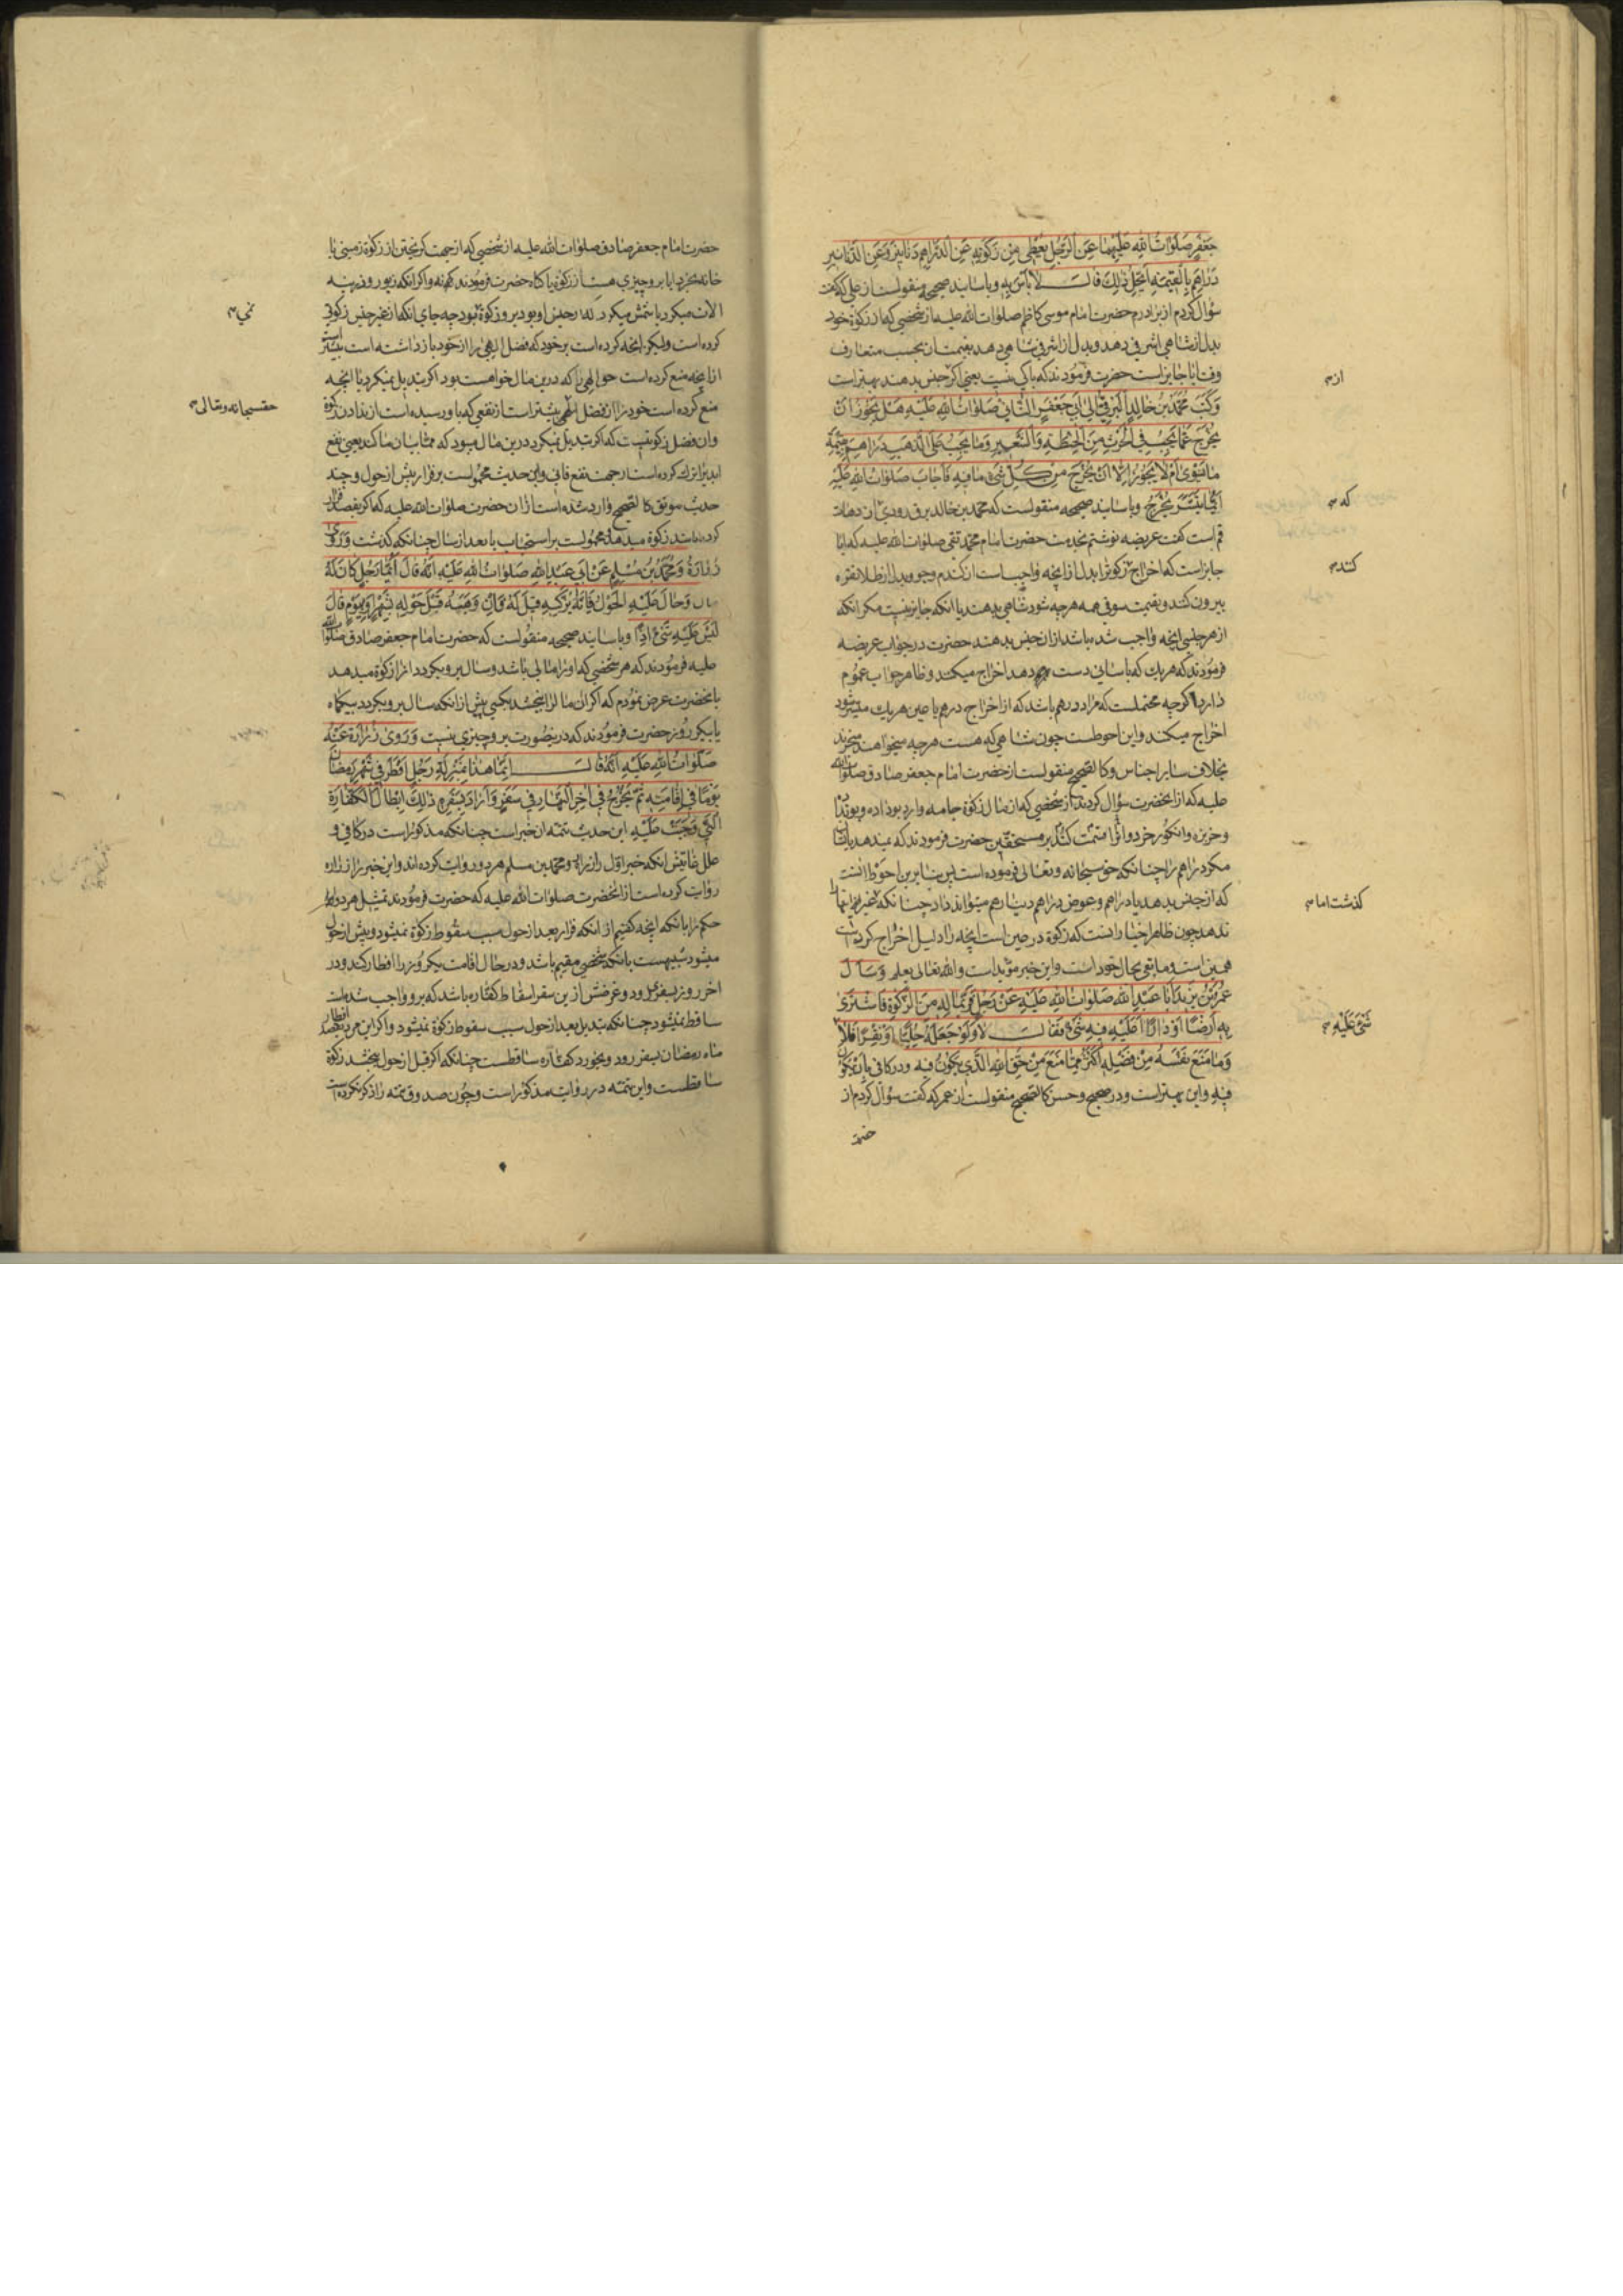 جَعْفَرٍ صَلَوَاتُ اللهِ عَلَيْهِمَا عَنِ الرَّجُلِ يُعْطِي مِنْ زَكَوتِهِ عَنِ الدَّرَاهِمِ دَنَانِيرَ وَعَنِ الدَّنَانِيرِ
دَرَاهِمَ بِالْقِيمَةِ اَيَحِلُّ ذٰلِكَ قَالَ لَا بَأْسَ بِهِ وباسانید صحیحه منقولست از علی که گفت
سؤال کردم از برادرم حضرت امام موسی کاظم صلوات الله علیه از شخصی که از زکوة خود
بدل از شاهی اشرفی دهد و بدل از اشرفی شاهی دهد بقیمت ان بحسب متعارف
وقت ایا جایز است حضرت فرمودند که باکی نیست یعنی اگر جنس بدهند بهتر است
وَكَتَبَ مُحَمَّدُ بْنُ خَالِدٍ الْبَرْقِيُّ اِلىٰ اَبِي جَعْفَرٍ الثَّانِي صَلَوَاتُ اللهِ عَلَيْهِ هَلْ يَجُوزُ اَنْ
يُخْرَجَ عَمَّا يَجِبُ فِي الْحَرْثِ مِنَ الْحِنْطَةِ وَالشَّعِيرِ وَمَا يَجِبُ عَلَى الذَّهَبِ دَرَاهِمُ بِقِيمَةِ
مَا يَسْوىٰ اَمْ لَا يَجُوزُ اِلَّا اَنْ يُخْرَجَ مِنْ كُلِّ شَيْءٍ مَا فِيهِ فَاَجَابَ صَلَوَاتُ اللهِ عَلَيْهِ
اَيُّمَا تَيَسَّرَ يُخْرَجُ وباسانید صحیحه منقولست که محمد بن خالد برقی
قم است گفت عریضه نوشتم بخدمت حضرت امام محمد تقی صلوات الله علیه که ایا
جایز است که اخراج زکوة بدل از انچه واجب است از گندم وجو وبدل از طلا نقره
بیرون کنند وبقیمت سوقی همه هرچه شود شاهی بدهند یا انکه جایز نیست مگر انکه
از هر جنسی انچه واجب شده باشد از ان جنس بدهند حضرت در جواب عریضه
فرمودند که هر یک که باسانی دست دهد اخراج میکند وظاهر جواب عموم
دارد اگرچه محتملست که مراد درهم باشد که از اخراج درهم یا عین هر یک میسر شود
اخراج میکند واین احوطست چون شاهی که هست هرچه میخواهند میخرند
بخلاف سایر اجناس وکالصحیح منقولست از حضرت امام جعفر صادق صلوات الله
علیه که از انحضرت سؤال کردند از شخصی که از مال زکوة جامه وارد بوداده
وخربزه وانگور خرد وانرا قسمت کند بر مستحقین حضرت فرمودند که نمیدهد بایشان
مگر دراهم را چنانکه حق سبحانه وتعالی فرموده است پس بنابرین احوط انست
که از جنس بدهد یا دراهم وعوض دراهم دینار هم میتواند داد چنانکه غیر اینها
ندهد چون ظاهر اخبار انست که زکوة در عین است انچه را دلیل اخراج کرده است
همین است ومابقی بحال خود است واین خبر مؤید است والله تعالی یعلم وَسَأَلَ
عُمَرُ بْنُ يَزِيدَ اَبَا عَبْدِ اللهِ صَلَوَاتُ اللهِ عَلَيْهِ عَنْ رَجُلٍ فَرَّ بِمَالِهِ مِنَ الزَّكٰوةِ فَاشْتَرىٰ
بِهِ اَرْضًا اَوْ دَارًا اَعَلَيْهِ فِيهِ شَيْءٌ فَقَالَ لَا وَلَوْ جَعَلَهُ حُلِيًّا اَوْ نِقَرًا فَلَا
وَمَا مَنَعَ نَفْسَهُ مِنْ فَضْلِهِ اَكْثَرُ مِمَّا مَنَعَ مِنْ حَقِّ اللهِ الَّذِي يَكُونُ فِيهِ ودر کافی بِاَنْ يَكُونَ
فِيهِ واین بهتر است ودر صحیح وحسن کالصحیح منقولست از عمر که گفت سؤال کردم از
حضرت
از
که
کند
کذشت اما
شَيْءَ عَلَيْهِ
حضرت امام جعفر صادق صلوات الله علیه از شخصی که از جهت کریختن از زکوة زمینی یا
خانه بخرد ایا برو چیزی هست از زکوة یا کناه حضرت فرمودند که نه واکر انکه زیور ونقره
کرده است ولیکن انچه کرده است بر خود که فضل الهی را از خود باز داشته است بیشتر است
از انچه منع کرده است حق الهی را که درین مال خواهست بود اکر تبدیل نمیکرد یا انچه
منع کرده است خود را از فضل الهی بیشتر است از نفعی که باو رسیده است از ندادن زکوة
ابدیرا ترک کرده است از جهت نفع فانی واین حدیث محمولست بر فرار پیش از حول وچند
حدیث موثق کالصحیح وارد شده است از ان حضرت صلوات الله علیه که اکر بقصد فرار
کرده باشد زکوة میدهد محمولست بر استحباب یا بعد از سال چنانکه کذشت وَرَوىٰ
زُرَارَةُ وَمُحَمَّدُ بْنُ مُسْلِمٍ عَنْ اَبِي عَبْدِ اللهِ صَلَوَاتُ اللهِ عَلَيْهِ اَنَّهُ قَالَ اَيُّمَا رَجُلٍ كَانَ لَهُ
مال وَحَالَ عَلَيْهِ الْحَوْلُ فَاِنَّهُ يُزَكِّيهِ قِيلَ لَهُ فَاِنْ وَهَبَهُ قَبْلَ حَوْلِهِ بِشَهْرٍ اَوْ بِيَوْمٍ قَالَ
لَيْسَ عَلَيْهِ شَيْءٌ اِذًا وباسانید صحیحه منقولست که حضرت امام جعفر صادق صلوات الله
علیه فرمودند که هر شخصی که او را مالی باشد وسال برو بکردد انرا زکوة میدهد
بانحضرت عرض نمودم که اکر ان مال را ببخشد بکسی پیش از انکه سال برو بکردد بیکماه
یا بیکروز حضرت فرمودند که درینصورت برو چیزی نیست وَرَوىٰ زُرَارَةُ عَنْهُ
صَلَوَاتُ اللهِ عَلَيْهِ اَنَّهُ قَالَ اِنَّمَا هٰذَا بِمَنْزِلَةِ رَجُلٍ اَفْطَرَ فِي شَهْرِ رَمَضَانَ
يَوْمًا فِي اِقَامَتِهِ ثُمَّ يَخْرُجُ فِي اٰخِرِ النَّهَارِ فِي سَفَرٍ وَاَرَادَ بِسَفَرِهِ ذٰلِكَ اِبْطَالَ الْكَفَّارَةِ
الَّتِي وَجَبَتْ عَلَيْهِ این حدیث تتمه ان خبر است چنانکه مذکور است در کافی و
علل غایتش انکه خبر اول را زراره ومحمد بن مسلم هر دو روایت کرده اند واین خبر را زراره
روایت کرده است از انحضرت صلوات الله علیه که حضرت فرمودند تمثیل هر دو
حکم را بانکه انچه کفتیم از انکه فرار بعد از حول سبب سقوط زکوة نمیشود وپیش از حول
میشود شبیهست بانکه شخصی مقیم باشد ودر حال اقامت یکروز را افطار کند ودر
اخر روز بسفر رود وغرضش ازین سفر اسقاط کفاره باشد که برو واجب شده است
ساقط نمیشود چنانکه تبدیل بعد از حول سبب سقوط زکوة نمیشود واکر این مرد
ماه رمضان بسفر رود وبخورد کفاره ساقطست چنانکه اکر قبل از حول ببخشد زکوة
ساقطست واین تتمه در روایت مذکور است وچون صدوق تتمه را ذکر نکرده است
حقسبحانه وتعالی